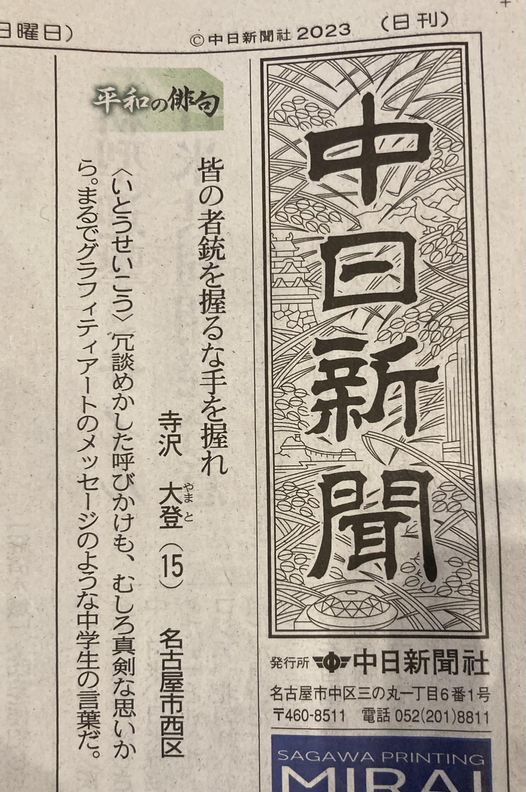 日曜日)
©中日新聞社 2023 (日刊)
中日新聞
発行所 中日新聞社
名古屋市中区三の丸一丁目6番1号
〒460-8511 電話 052(201)8811
SAGAWA PRINTING
MIRAI
平和の俳句
皆の者銃を握るな手を握れ
寺沢 大登(15) 名古屋市西区
やまと
〈いとうせいこう〉冗談めかした呼びかけも、むしろ真剣な思いか
ら。まるでグラフィティアートのメッセージのような中学生の言葉だ。